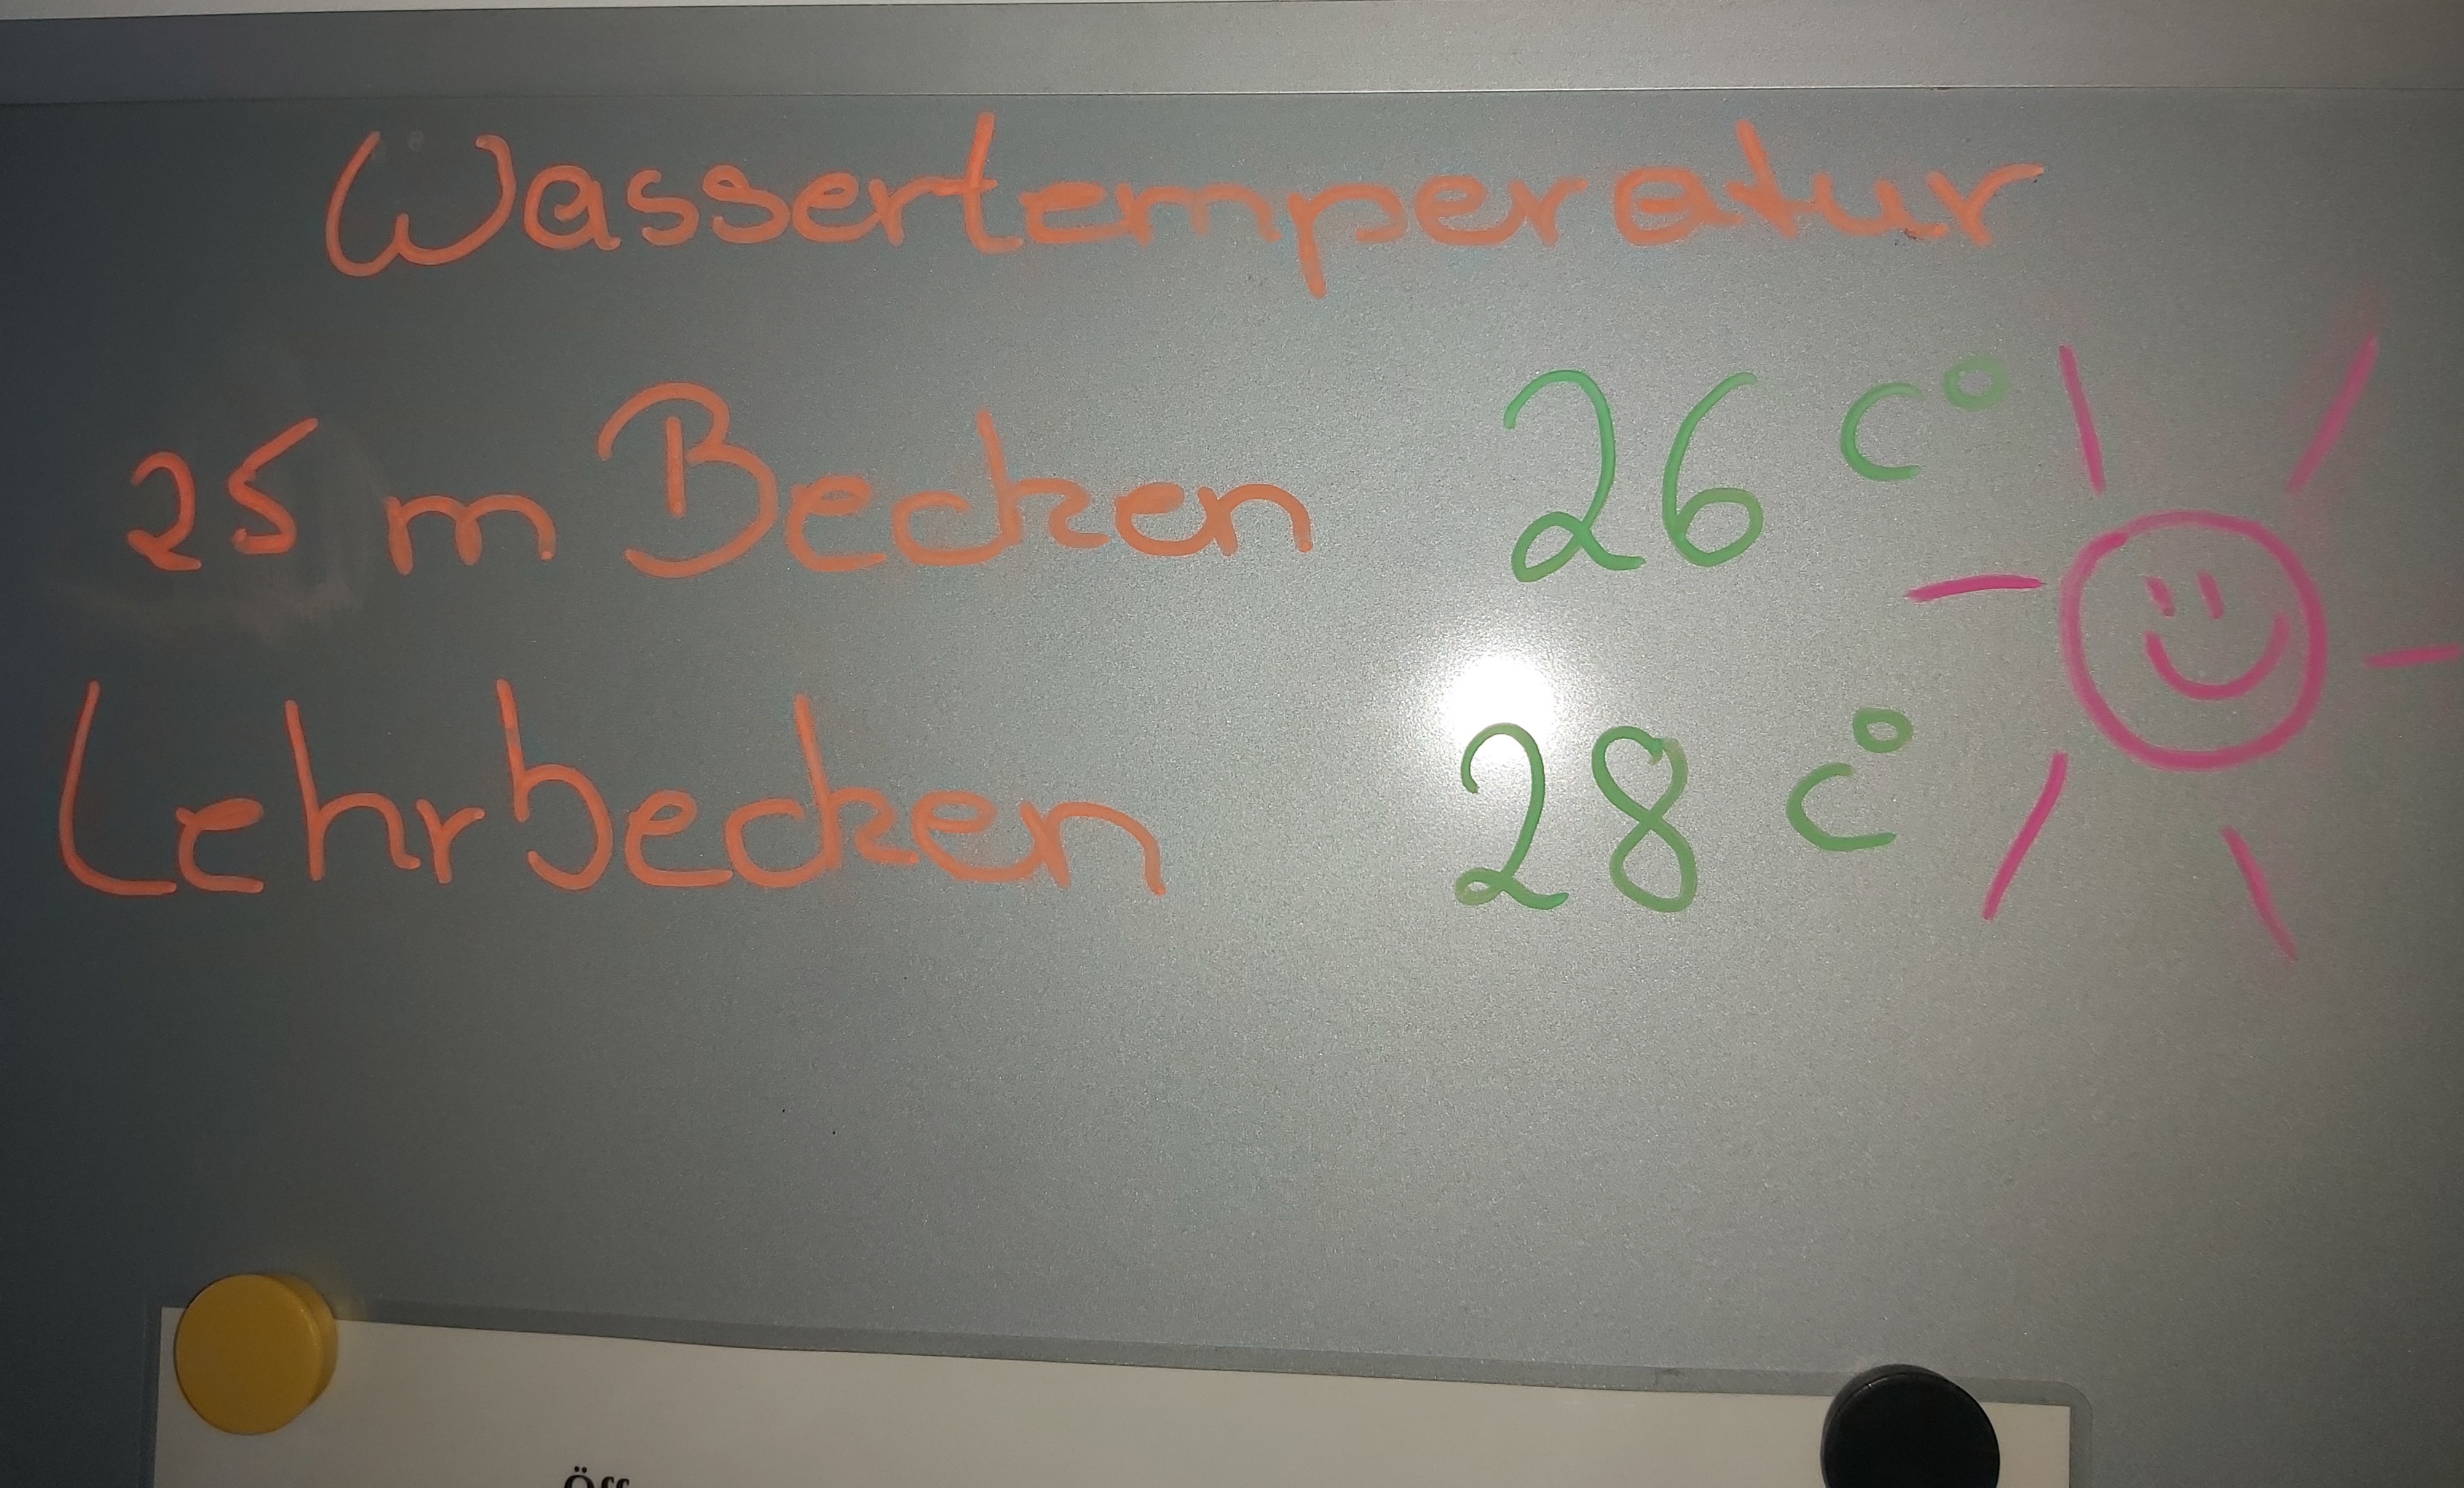 Wassertemperatur
25 m Becken 26 C°
Lehrbecken 28 C°